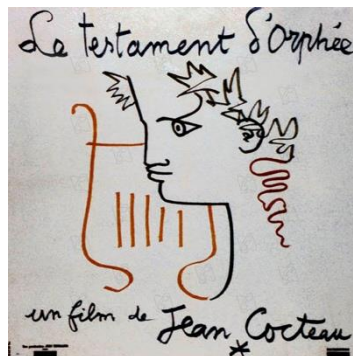 Le testament d'Orphée
un film de Jean Cocteau